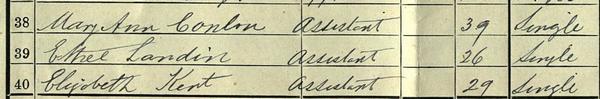 38 Mary Ann Conlon Assistant 39 Single
39 Ethel Landin Assistant 26 Single
40 Elizabeth Kent Assistant 29 Single